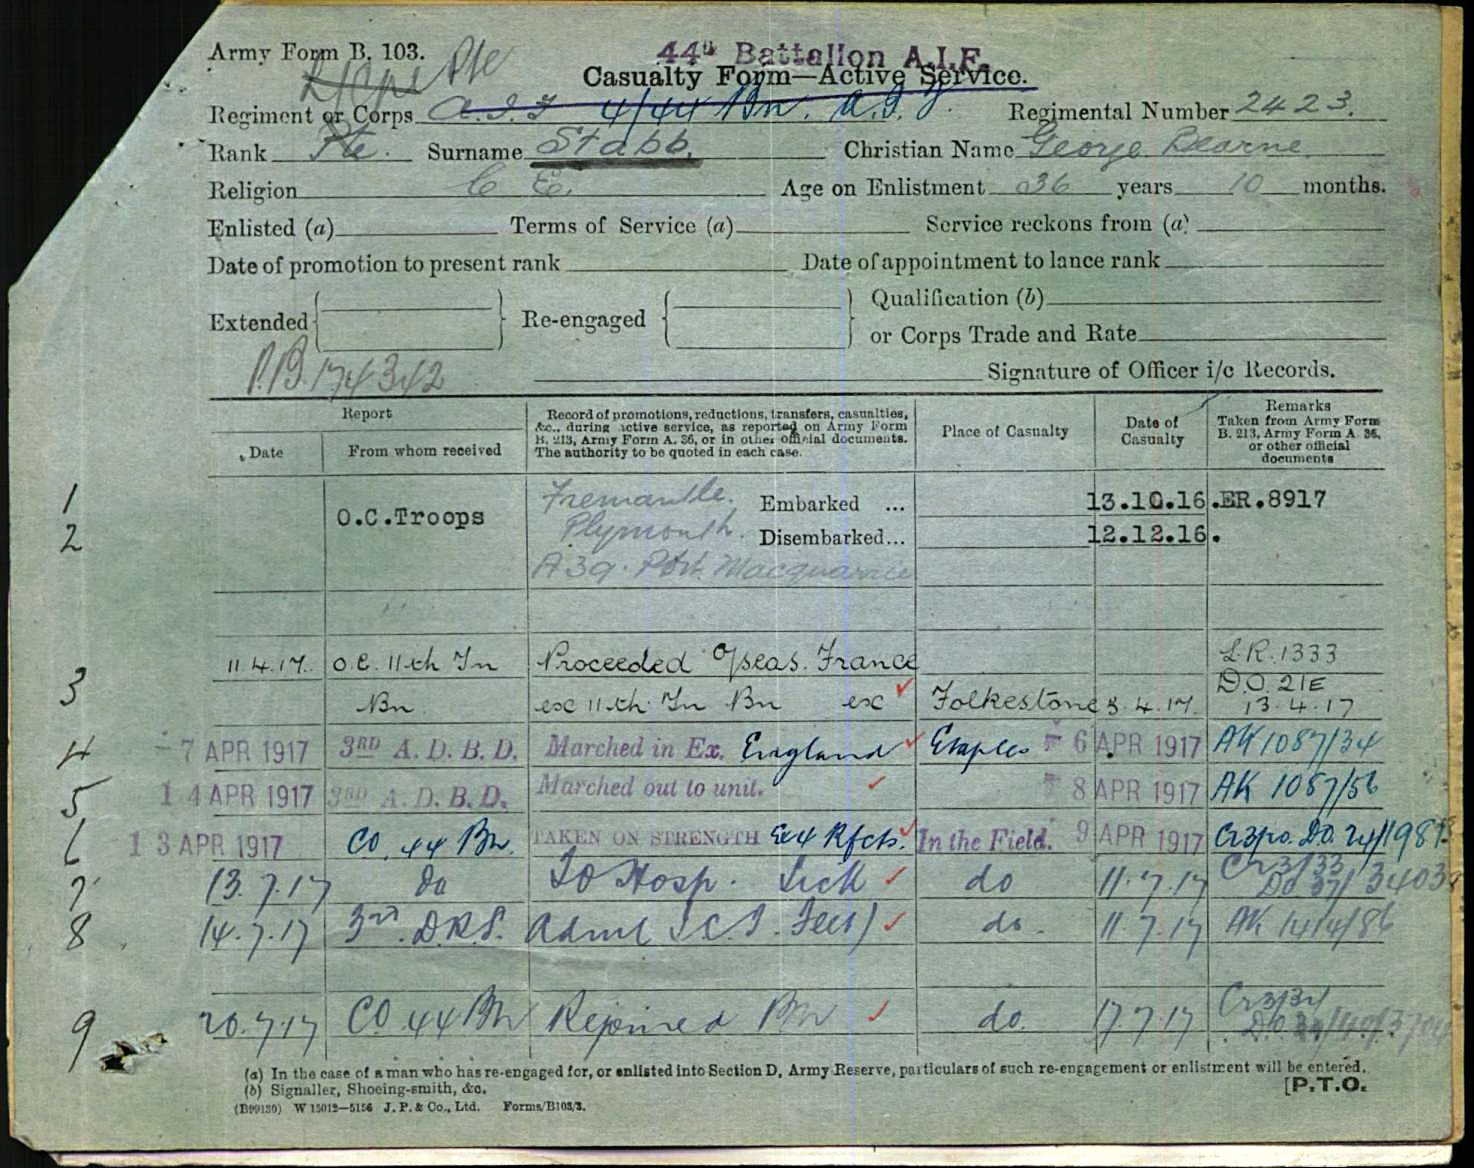 Army Form B. 103.
44th Battalion A.I.F.
Pte
Casualty Form—Active Service.
Regiment or Corps A.I.F 4/44 Bn. A.I.F. Regimental Number 2423.
Rank Pte. Surname Stabb. Christian Name George Hearne
Religion C E. Age on Enlistment 36 years 10 months.
Enlisted (a) Terms of Service (a) Service reckons from (a)
Date of promotion to present rank Date of appointment to lance rank
Extended Re-engaged Qualification (b)
or Corps Trade and Rate
P.B. 174342
Signature of Officer i/c Records.
Report
Date From whom received
Record of promotions, reductions, transfers, casualties, &c., during active service, as reported on Army Form B. 213, Army Form A. 36, or in other official documents. The authority to be quoted in each case.
Place of Casualty
Date of Casualty
Remarks Taken from Army Form B. 213, Army Form A. 36, or other official documents
1 O.C.Troops Fremantle. Embarked ... 13.10.16. ER.8917
2 Plymouth. Disembarked... 12.12.16.
A39. Port Macquarie
11.4.17. O.C. 11th Tn Proceeded O/seas. France L.R. 1333
3 Bn ex 11th Tn Bn ex Folkestone 5.4.17. D.O. 21E 13.4.17
4 7 APR 1917 3RD A. D. B. D. Marched in Ex. England Etaples 6 APR 1917 AK 1087/34
5 14 APR 1917 3RD A. D. B. D. Marched out to unit. 8 APR 1917 AK 1087/56
6 13 APR 1917 CO. 44 Bn. TAKEN ON STRENGTH Ex 4 Rfcts. In the Field. 9 APR 1917
7 13.7.17 do To Hosp. Sick do 11.7.17 Cr3/33
8 14.7.17 3rd D.R.S. Admt I.C.T. Feet) do. 11.7.17 AK 1414/86
9 20.7.17 CO. 44 Bn Rejoined Bn do. 17.7.17
(a) In the case of a man who has re-engaged for, or enlisted into Section D, Army Reserve, particulars of such re-engagement or enlistment will be entered.
(b) Signaller, Shoeing-smith, &c.
[P.T.O.
(B99130) W 15012—5156 J. P. & Co., Ltd. Forms/B103/3.